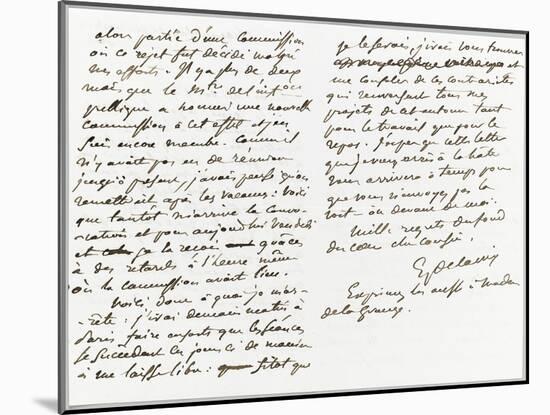 alors partie d'une commission
où ce rejet fut décidé malgré
mes efforts. Il y a plus de deux
mois que le M.tre de l'inst.on
publique a nommé une nouvelle
commission à cet effet et j'en
suis encore membre. Comme il
n'y avait pas eu de réunion
jusqu'à présent, j'avais pensé qu'on
remettrait après les vacances : voilà
que tantôt m'arrive la convo-
cation et pour aujourd'hui vendredi
et ça la reçoi grâces
à des retards à l'heure même
où la commission avait lieu.
Voilà donc à quoi je m'ar-
rête : j'irai demain matin à
Paris : faire ensorte que les séances
se succèdent ces jours ci de manière
à me laisser libre : sitot que
je le serais, j'irai vous trouver
et
me consoler de ces contrariétés
qui renversent tous mes
projets de cet automne tant
pour le travail que pour le
repos. J'espère que cette lettre
que je vous écris à la hâte
vous arrivera à temps pour
que vous n'envoyez pas la
voit- au devant de moi.
Mille regrets du fond
du cœur cher cousin.
Eg Delacroix
Exprimez les aussi à Madame
de la Grange.